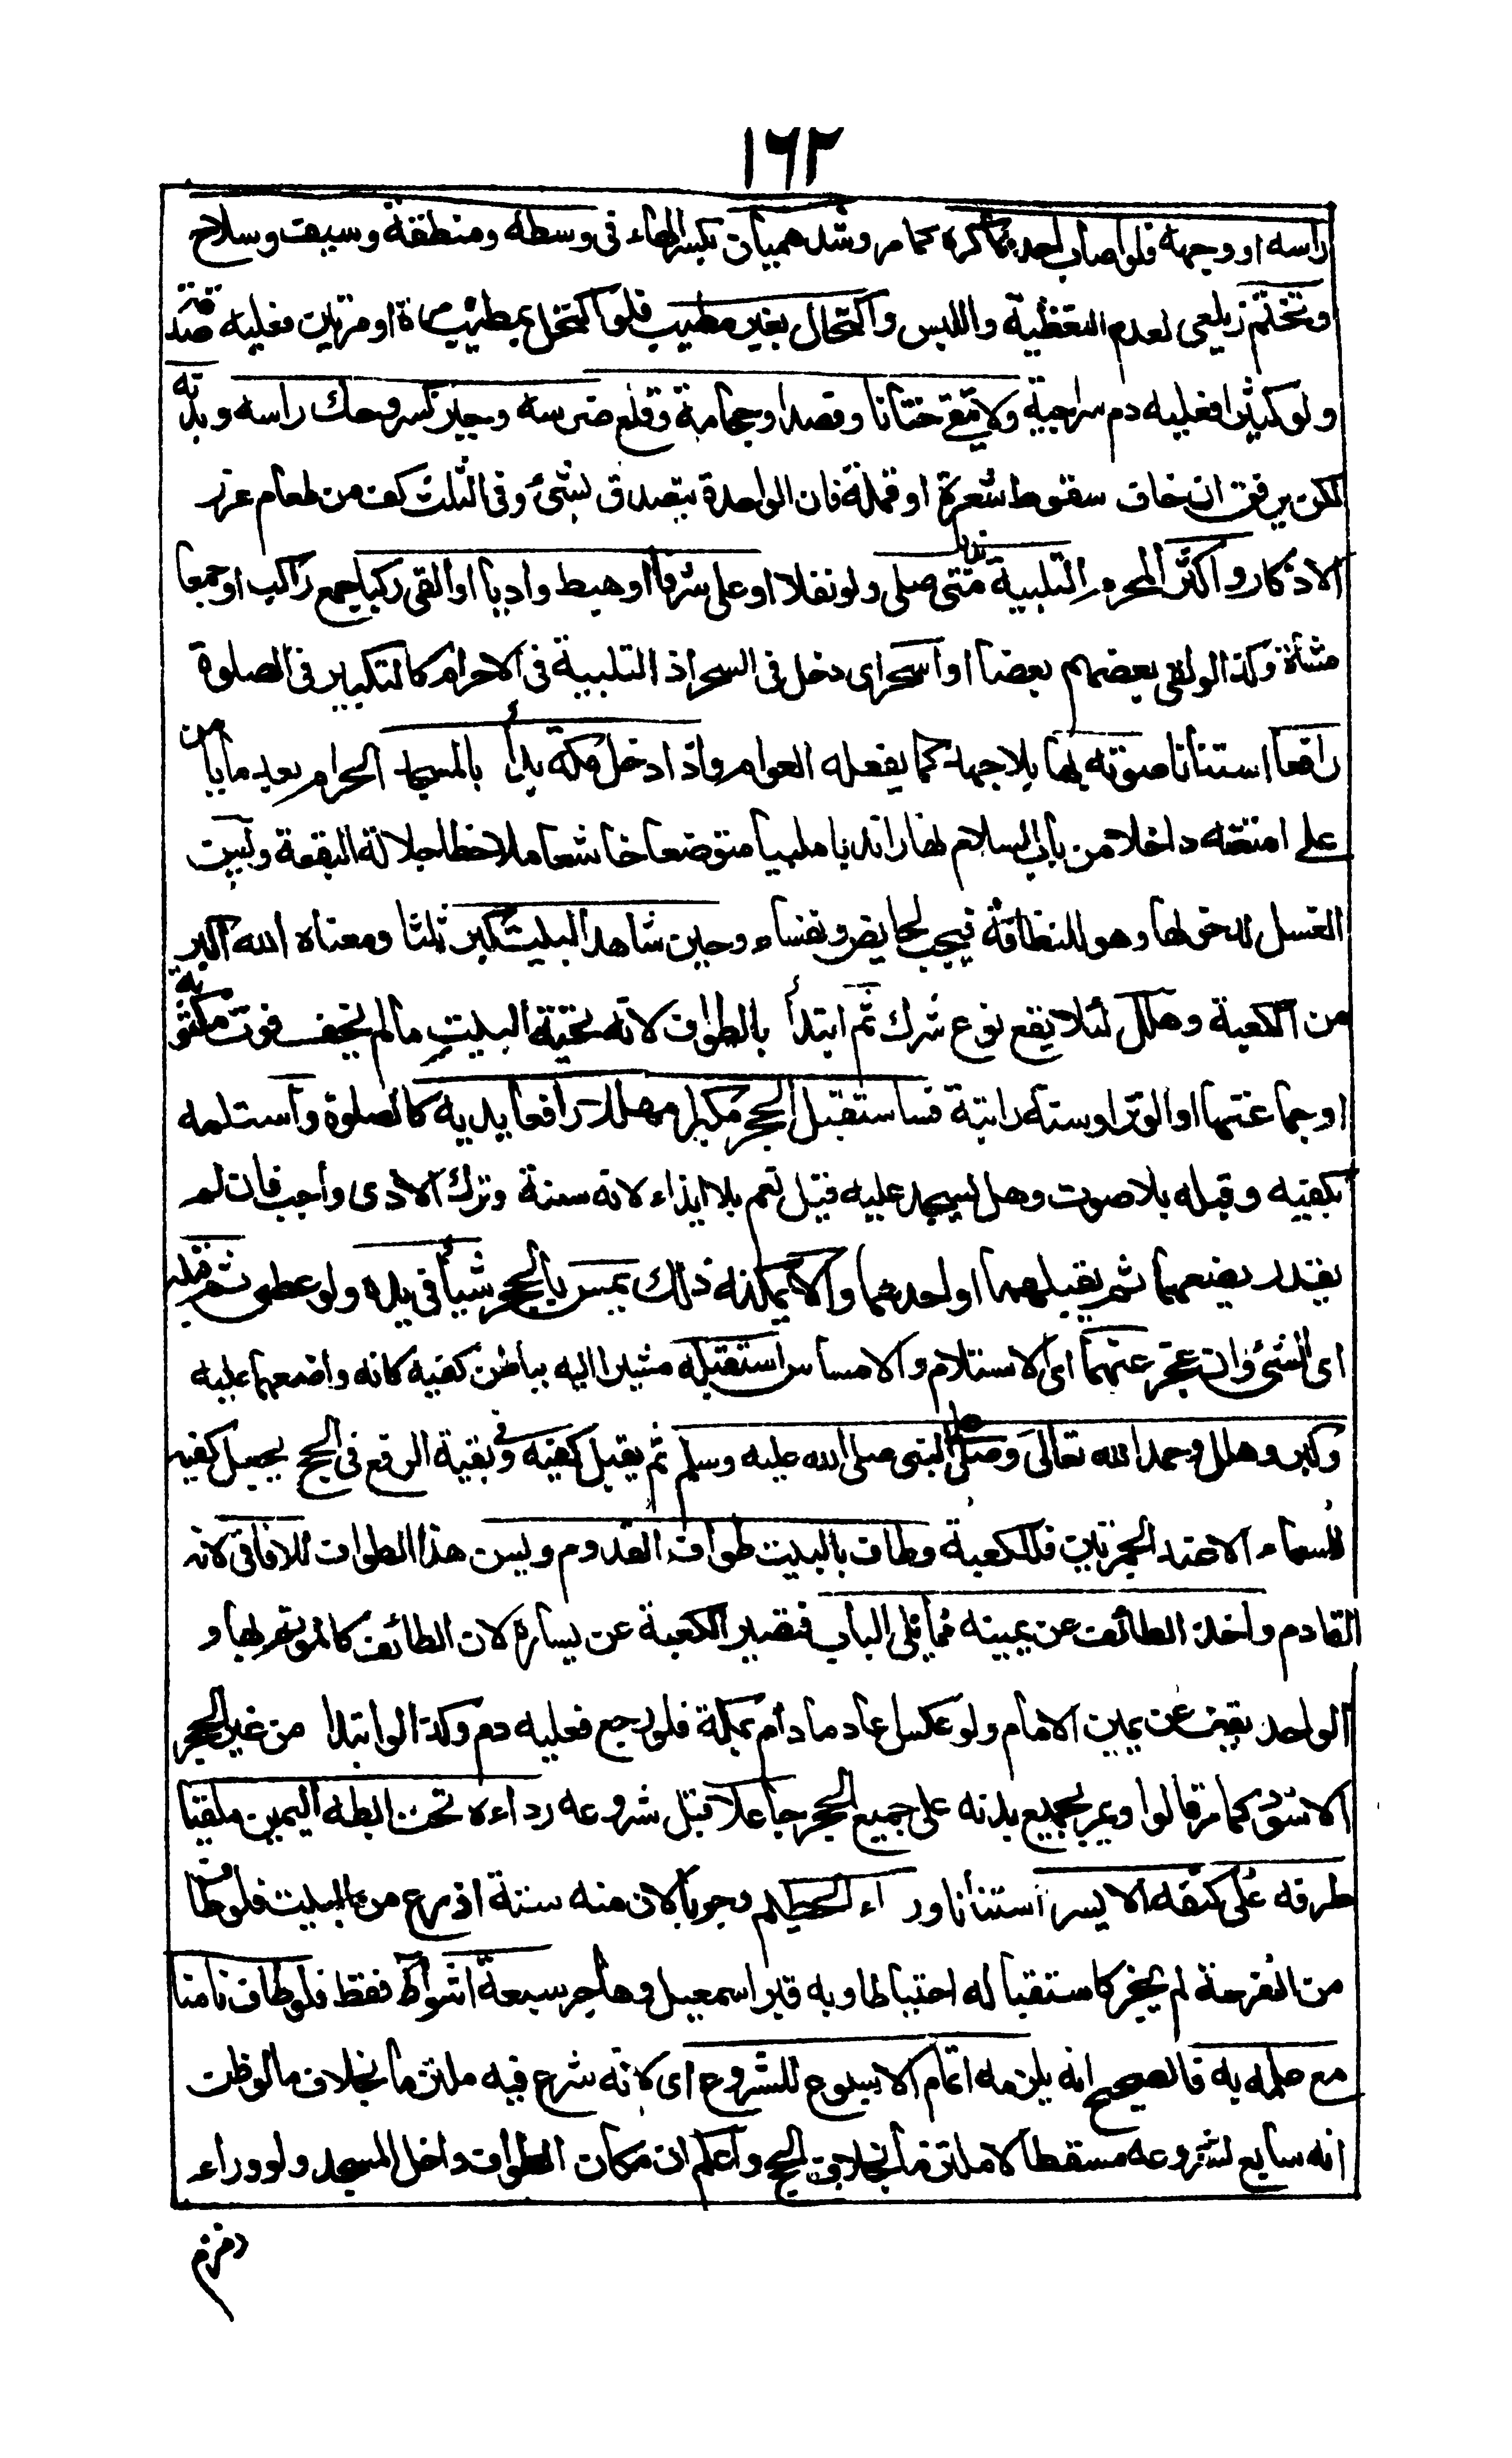 ١٦٢
راسه او وجهه فلو اصاب احدهما كره كما مر وشد هميان بكسر الهاء فى وسطه ومنطقة وسيف وسلاح
وتختم زيلعى لعدم التغطية واللبس واكتحال بغير مطيب فلو اكتحل بمطيب مرة او مرتين فعليه صدقة
ولو كثيرا فعليه دم سراجية ولا يتقى ختانا وفصدا وحجامة وقلع ضرسه وجبر كسر وحك راسه وبدنه
لكن يرفق ان خاف سقوط شعرة او قملة فان الواحدة يتصدق بشئ وفى الثلث كف من طعام غرر
الاذكار واكثر المحرم التلبية ندبا متى صلى ولو نفلا او على شرفا او هبط واديا او القى ركبا جمع راكب او جمعا
مشاة وكذا لو لقى بعضهم بعضا او اسحر اى دخل فى السحر اذ التلبية فى الاحرام كالتكبير فى الصلوة
رافعا استنانا صوته بها بلا جهد كما يفعله العوام واذا دخل مكة بدأ بالمسجد الحرام بعد ما يأمن
على امتعته داخلا من باب السلام نهارا ندبا ملبيا متوضعا خاشعا ملاحظا جلالة البقعة ويسن
الغسل لدخولها وهو للنظافة فيجب لحايض ونفساء وحين شاهد البيت كبر ثلثا ومعناه الله اكبر
من الكعبة وهلل لئلا يقع نوع شرك ثم ابتدأ بالطواف لانه تحية البيت ما لم يخف فوت مكتوبة
او جماعتها او الوتر او سنة راتبة فاستقبل الحجر مكبرا مهللا رافعا يديه كالصلوة واستلمه
بكفيه وقبله بلا صوت وهل يسجد عليه قيل نعم بلا ايذاء لانه سنة وترك الاذى واجب فان لم
يقدر يضعهما ثم يقبلهما او احدهما والا يمكنه ذلك يمس بالحجر شيأ فى يده ولو عصى ثم قبله
اى الشئ وان عجز عنهما اى الاستلام والامساس استقبله مشيرا اليه بباطن كفيه كانه واضعهما عليه
وكبر وهلل وحمد الله تعالى وصلى على النبى صلى الله عليه وسلم ثم يقبل كفيه وفى بقية الرفع فى الحج يجعل كفيه
للسماء الا عند الجمرتين فللكعبة وطاف بالبيت طواف القدوم ويسن هذا الطواف للافاقى لانه
القادم واخذ الطائف عن يمينه مما يلى الباب فتصير الكعبة عن يساره لان الطائف كالمؤتم بها و
الواحد يقف عن يمين الامام ولو عكس عاد ما دام بمكة فلو رجع فعليه دم وكذا لو ابتدا من غير الحجر
الاسود كما مر قالوا ويمر بجميع بدنه على جميع الحجر جاعلا قبل شروعه رداءه تحت ابطه اليمين ملقيا
طرفه على كتفه الايسر استنانا وراء الحطيم وجوبا لان منه ستة اذرع من البيت فلو طاف
من الفرجة لم يجز كاستقباله احتياطا وبه قبر اسمعيل وهاجر سبعة اشواط فقط فلو طاف ثامنا
مع علمه به فالصحيح انه يلزمه اتمام الاسبوع للشروع اى لانه شرع فيه ملتزما بخلاف ما لو ظن
انه سابع لشروعه مسقطا لا ملتزما بخلاف الحج واعلم ان مكان الطواف داخل المسجد ولو وراء
زمزم